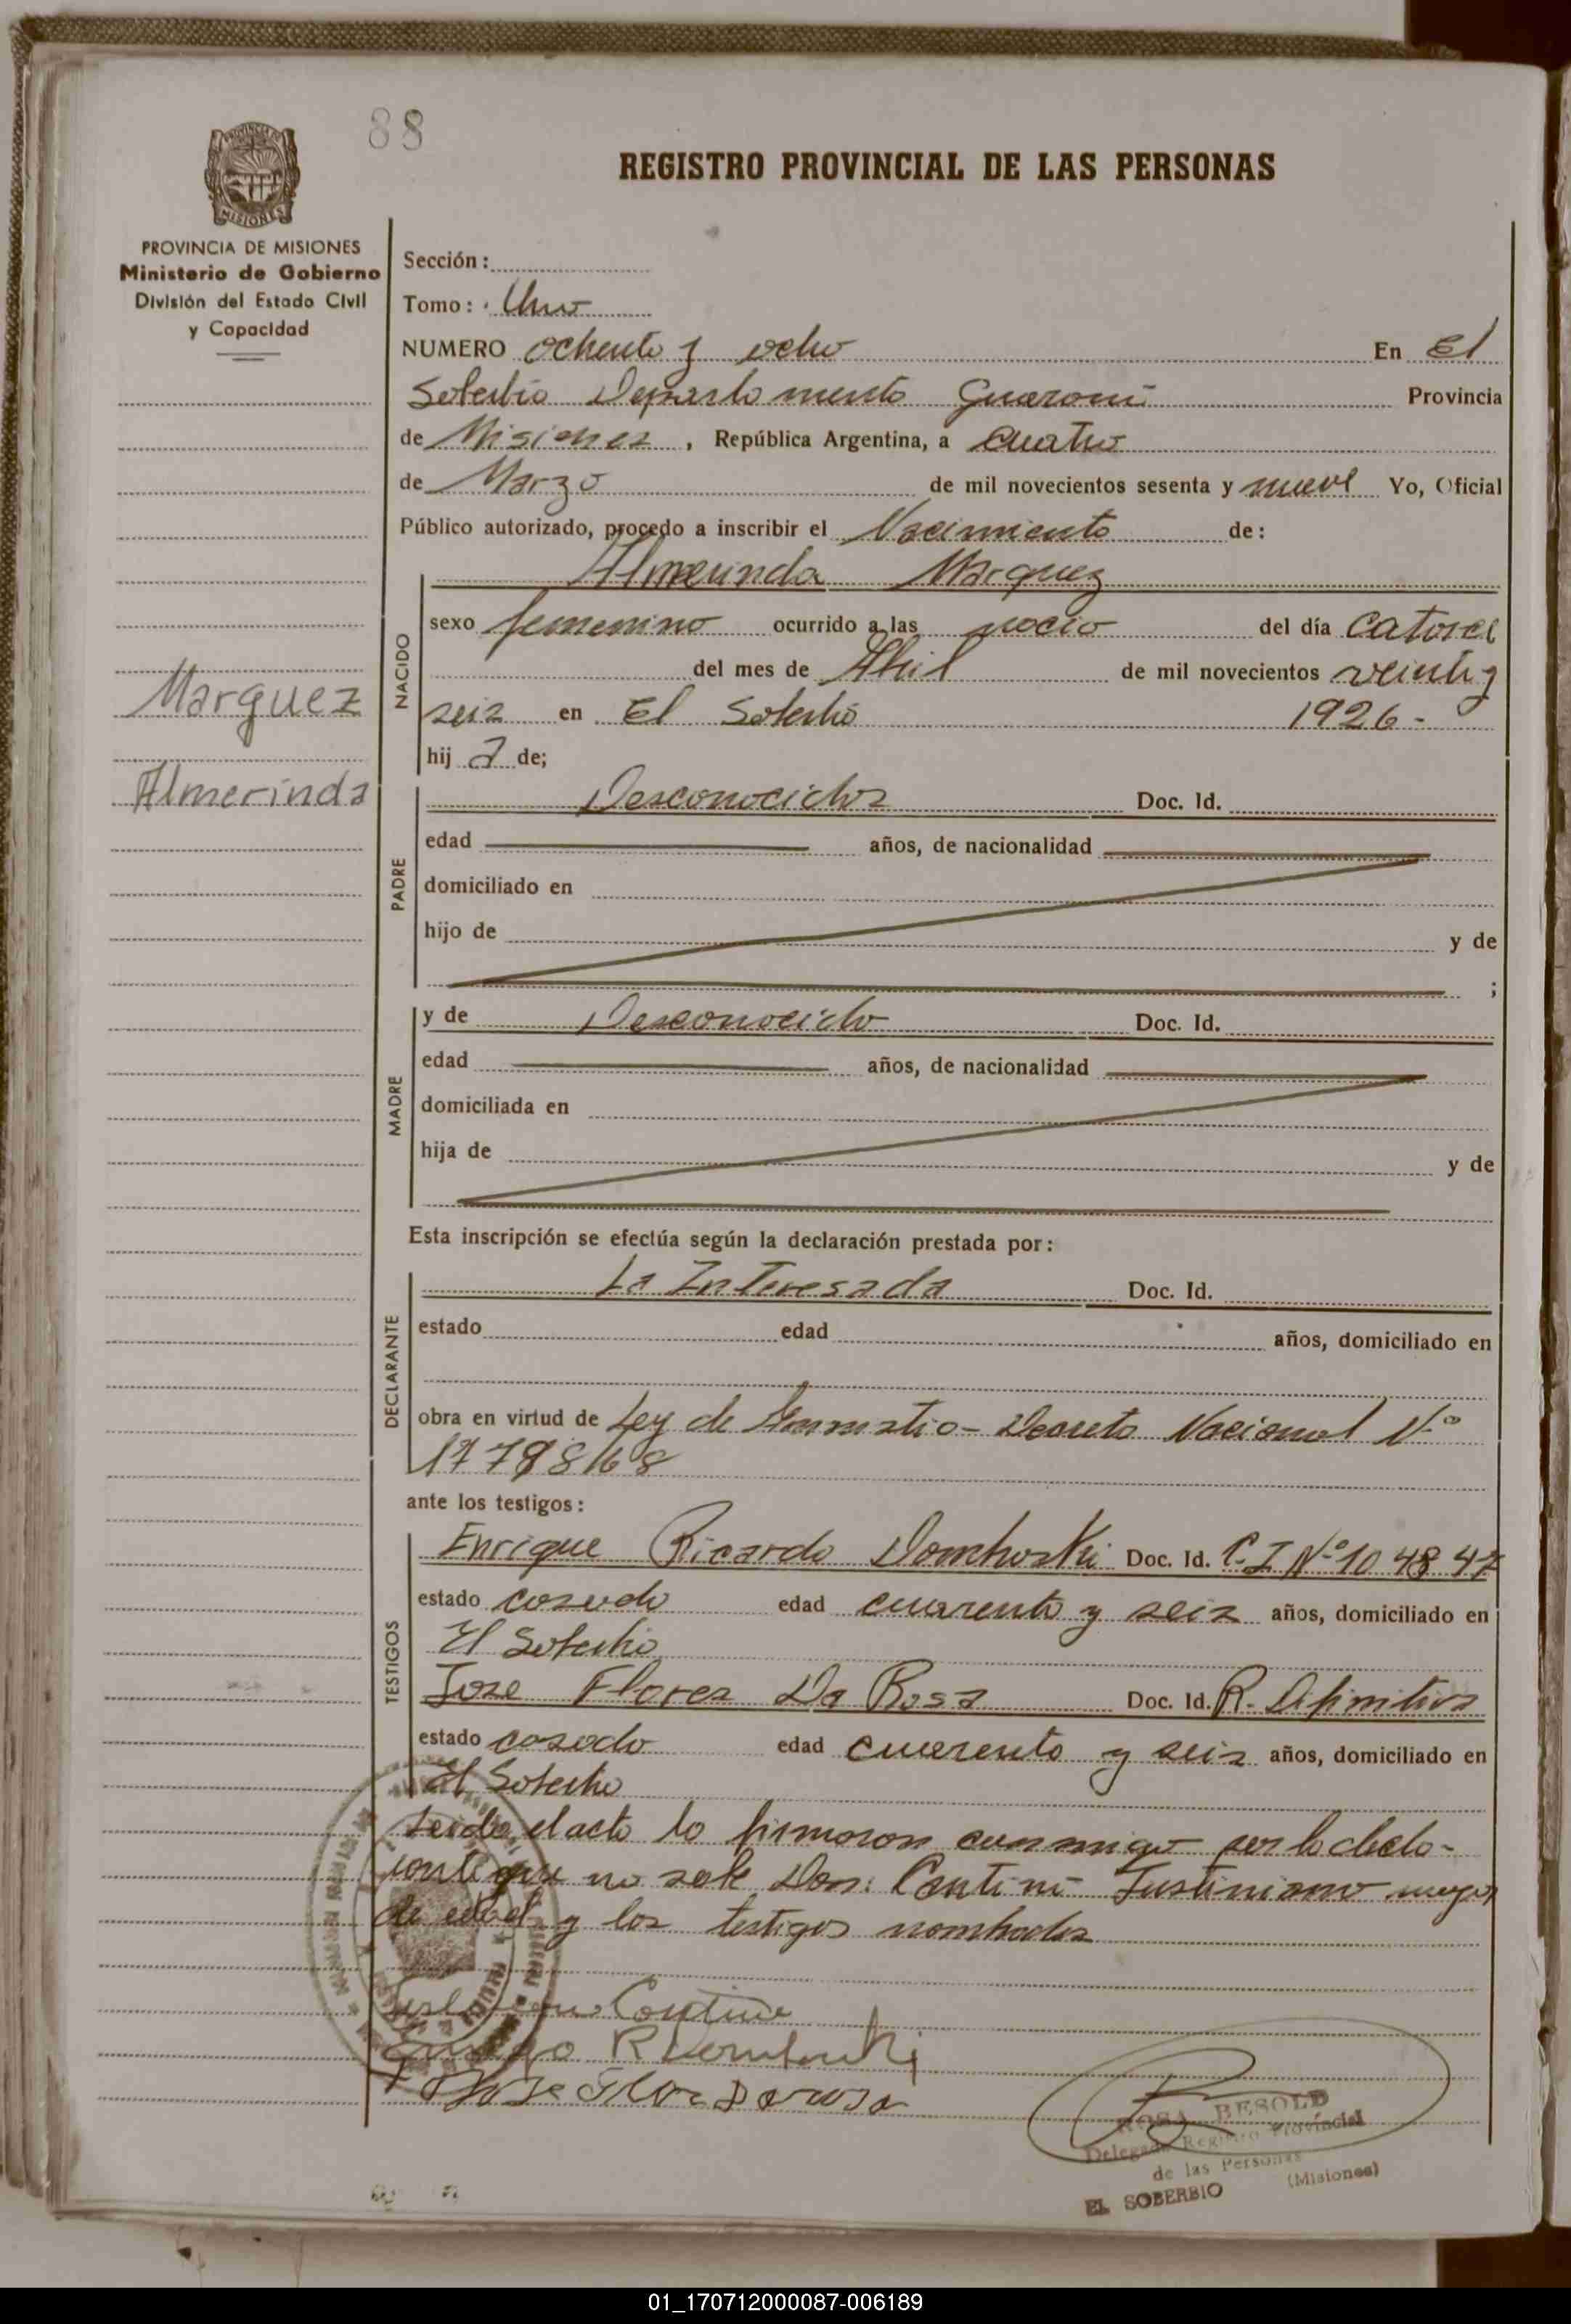 88
REGISTRO PROVINCIAL DE LAS PERSONAS
PROVINCIA DE MISIONES
Ministerio de Gobierno
División del Estado Civil
y Capacidad
Sección:
Tomo: Uno
NUMERO ochenta y ocho En El
Soberbio Departamento Guarani Provincia
de Misiones, República Argentina, a cuatro
de Marzo de mil novecientos sesenta y nueve Yo, Oficial
Público autorizado, procedo a inscribir el Nacimiento de:
Almerinda Marquez
NACIDO
sexo femenino ocurrido a las del día catorce
del mes de Abril de mil novecientos veinti y
seis en El Soberbio 1926-
hij a de;
Marquez
Almerinda
PADRE
Desconocidos Doc. Id.
edad años, de nacionalidad
domiciliado en
hijo de y de
;
MADRE
y de Desconocido Doc. Id.
edad años, de nacionalidad
domiciliada en
hija de y de
Esta inscripción se efectúa según la declaración prestada por:
DECLARANTE
La Interesada Doc. Id.
estado edad años, domiciliado en
obra en virtud de Ley de Decreto Nacional Nº
ante los testigos:
TESTIGOS
Enrique Ricardo Domboski Doc. Id. C.I Nº 10 48 47
estado casado edad cuarenta y seis años, domiciliado en
El Soberbio
Jose Flores Da Rosa Doc. Id. R. Definitiva
estado casado edad cuarenta y seis años, domiciliado en
El Soberbio
Leido el acto lo firmaron conmigo por la decla-
rante que no sabe Don: Contini Justiniano mayor
de edad y los testigos nombrados
Contini
R Domboski
Jose Flores Da rosa
ROSA BESOLD
Delegada Registro Provincial
de las Personas
EL SOBERBIO (Misiones)
01_170712000087-006189